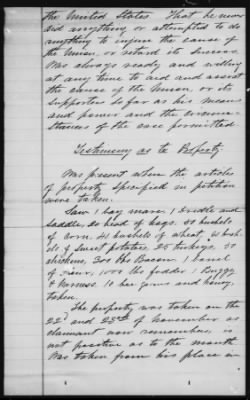 the United States. That he never
did anything or attempted to do
anything to injure the cause of
the Union, or retard its success
Was always ready and willing
at any time to aid and assist
the cause of the Union, or its
supporters so far as his means
and power and the circum-
stances of the case permitted
Testimony as to Property
Was present when the articles
of property specified in petition
were taken.
Saw 1 bay mare, 1 bridle and
saddle, 20 head of hogs, 50 bushels
of corn, 41 bushels of wheat, bush-
els of sweet potatoes, 25 turkeys, 50
chickens, 300 lbs Bacon, 1 barrel
of 1000 lbs fodder, 1 Buggy
& Harness, 10 bee gums and honey,
taken.
The property was taken on the
22d and 23rd of November as
claimant now remembers, is
not positive as to the month
Was taken from his place in